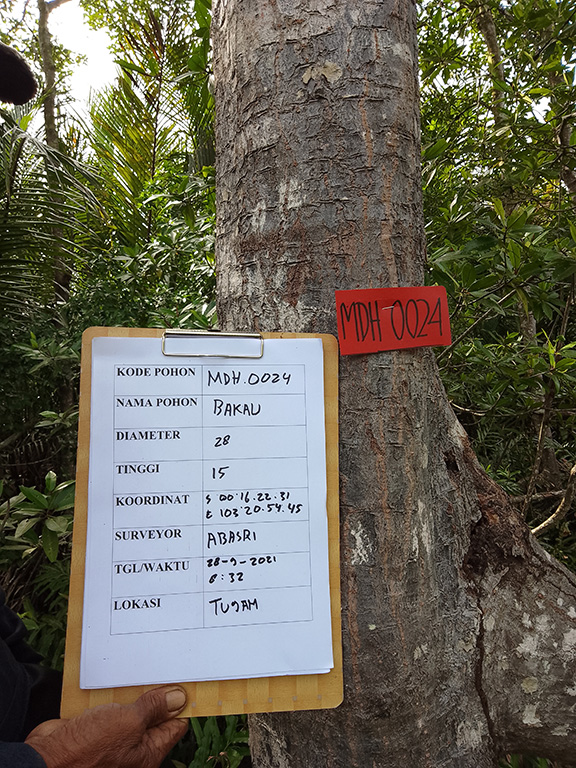 MDH-0024
KODE POHON MDH.0024
NAMA POHON BAKAU
DIAMETER 28
TINGGI 15
KOORDINAT S 00.16.22.31
E 103.20.54.45
SURVEYOR ABASRI
TGL/WAKTU 28-9-2021
8:32
LOKASI TUJAM